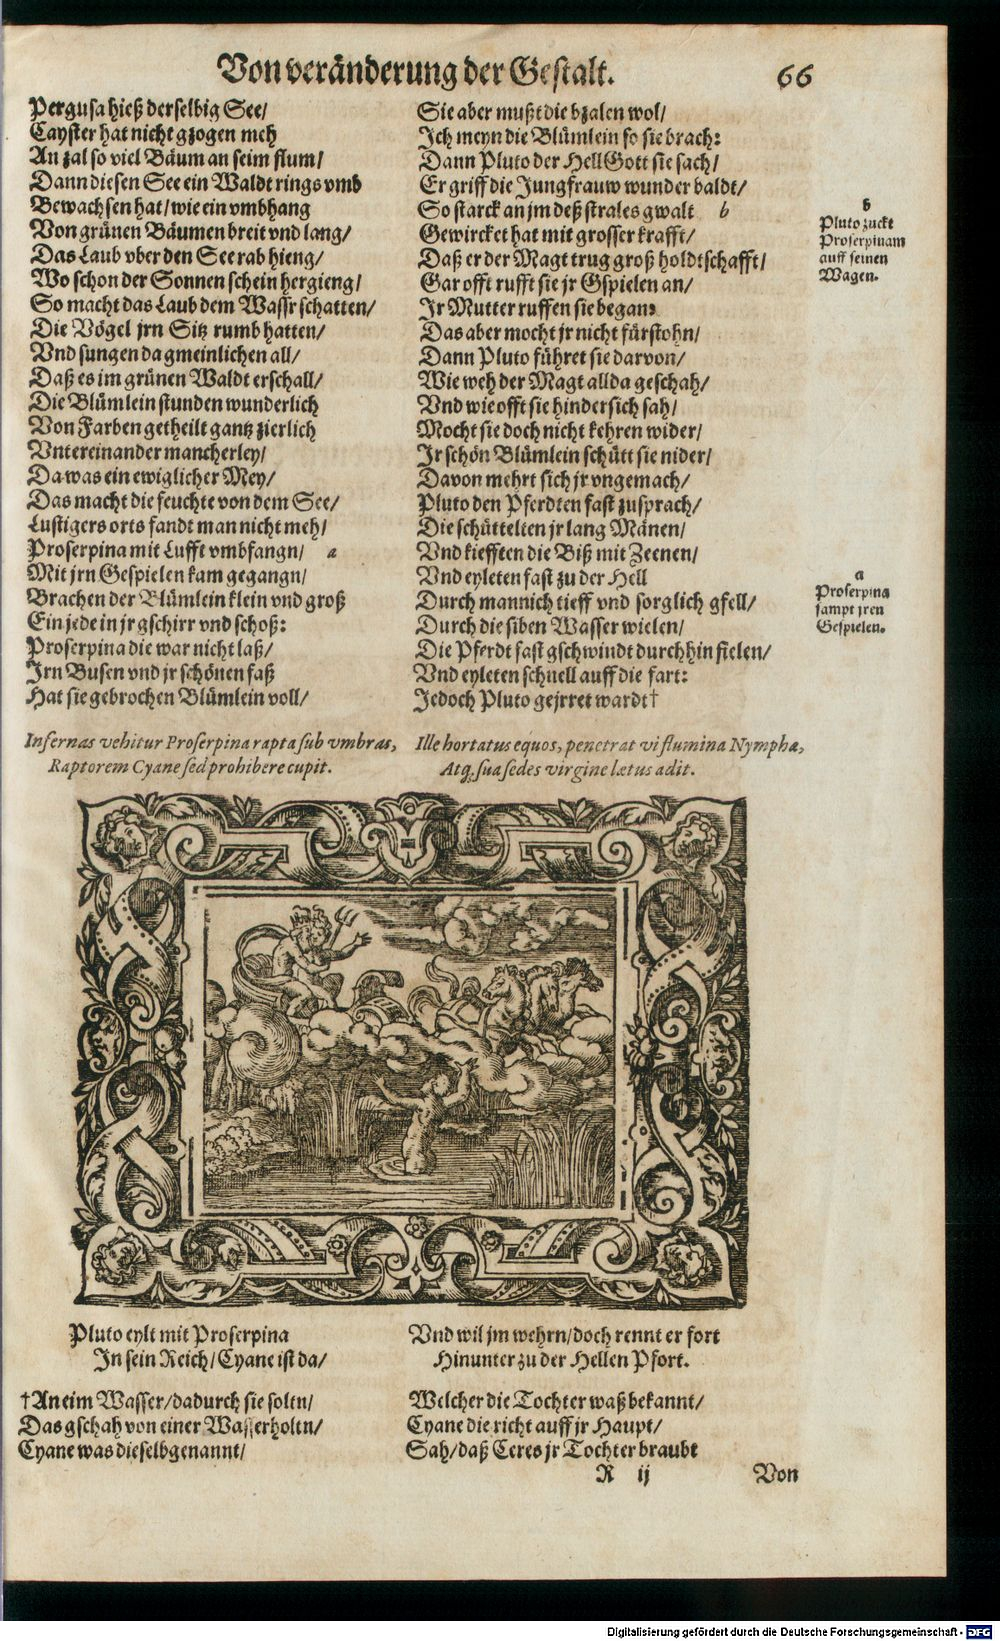 Von veränderung der Gestalt. 66
Pergusa hieß derselbig See/
Cayster hat nicht gzogen meh
An zal so viel Bäum an seim flum/
Dann diesen See ein Waldt rings vmb
Bewachsen hat/ wie ein vmbhang
Von grünen Bäumen breit vnd lang/
Das Laub vber den See rab hieng/
Wo schon der Sonnen schein hergieng/
So macht das Laub dem Wassr schatten/
Die Vögel jrn Sitz rumb hatten/
Vnd sungen da gmeinlichen all/
Daß es im grünen Waldt erschall/
Die Blümlein stunden wunderlich
Von Farben getheilt gantz zierlich
Vntereinander mancherley/
Da was ein ewiglicher Mey/
Das macht die feuchte von dem See/
Lustigers orts fandt man nicht meh/
Proserpina mit Lufft vmbfangn/ a
Mit jrn Gespielen kam gegangn/
Brachen der Blümlein klein vnd groß
Ein jede in jr gschirr vnd schoß:
Proserpina die war nicht laß/
Irn Busen vnd jr schönen faß
Hat sie gebrochen Blümlein voll/
Sie aber mußt die bzalen wol/
Ich meyn die Blümlein so sie brach:
Dann Pluto der Hell Gott sie sach/
Er griff die Jungfrauw wunder baldt/
So starck an jm deß strales gwalt b
Gewircket hat mit grosser krafft/
Daß er der Magt trug groß holdtschafft/
Gar offt rufft sie jr Gspielen an/
Ir Mutter ruffen sie began:
Das aber mocht jr nicht fürstohn/
Dann Pluto führet sie darvon/
Wie weh der Magt allda geschah/
Vnd wie offt sie hindersich sah/
Mocht sie doch nicht kehren wider/
Ir schön Blümlein schütt sie nider/
Davon mehrt sich jr vngemach/
Pluto den Pferdten fast zusprach/
Die schüttelten jr lang Mänen/
Vnd kiefften die Biß mit Zeenen/
Vnd eyleten fast zu der Hell
Durch mannich tieff vnd sorglich gfell/
Durch die siben Wasser wielen/
Die Pferdt fast gschwindt durchhin fielen/
Vnd eyleten schnell auff die fart:
Jedoch Pluto gejrret wardt†
b
Pluto zuckt
Proserpinam
auff seinen
Wagen.
a
Proserpina
sampt jren
Gespielen.
Infernas vehitur Proserpina rapta sub vmbras,
Raptorem Cyane sed prohibere cupit.
Ille hortatus equos, penetrat vi flumina Nymphæ,
Atq; sua sedes virgine lætus adit.
Pluto eylt mit Proserpina
In sein Reich/ Cyane ist da/
Vnd wil jm wehrn/ doch rennt er fort
Hinunter zu der Hellen Pfort.
†An eim Wasser/ dadurch sie soltn/
Das gschah von einer Wasserholtn/
Cyane was dieselb genannt/
Welcher die Tochter waß bekannt/
Cyane die richt auff jr Haupt/
Sah/ daß Ceres jr Tochter braubt
R ij Von
Digitalisierung gefördert durch die Deutsche Forschungsgemeinschaft - DFG